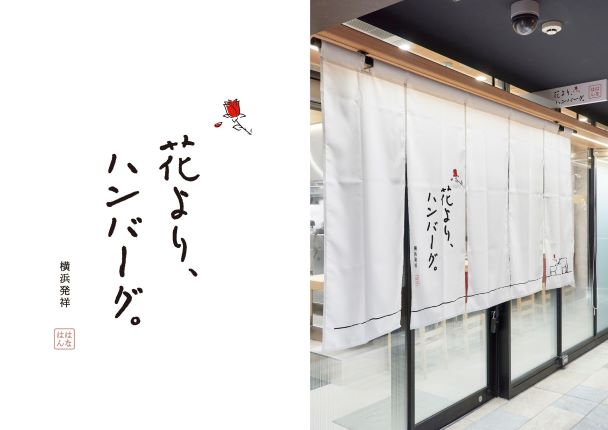 花より、
ハンバーグ。
横浜発祥
はな
はん
花より、
ハンバーグ。
横浜発祥
花より、
ハンバーグ。
はな
はん